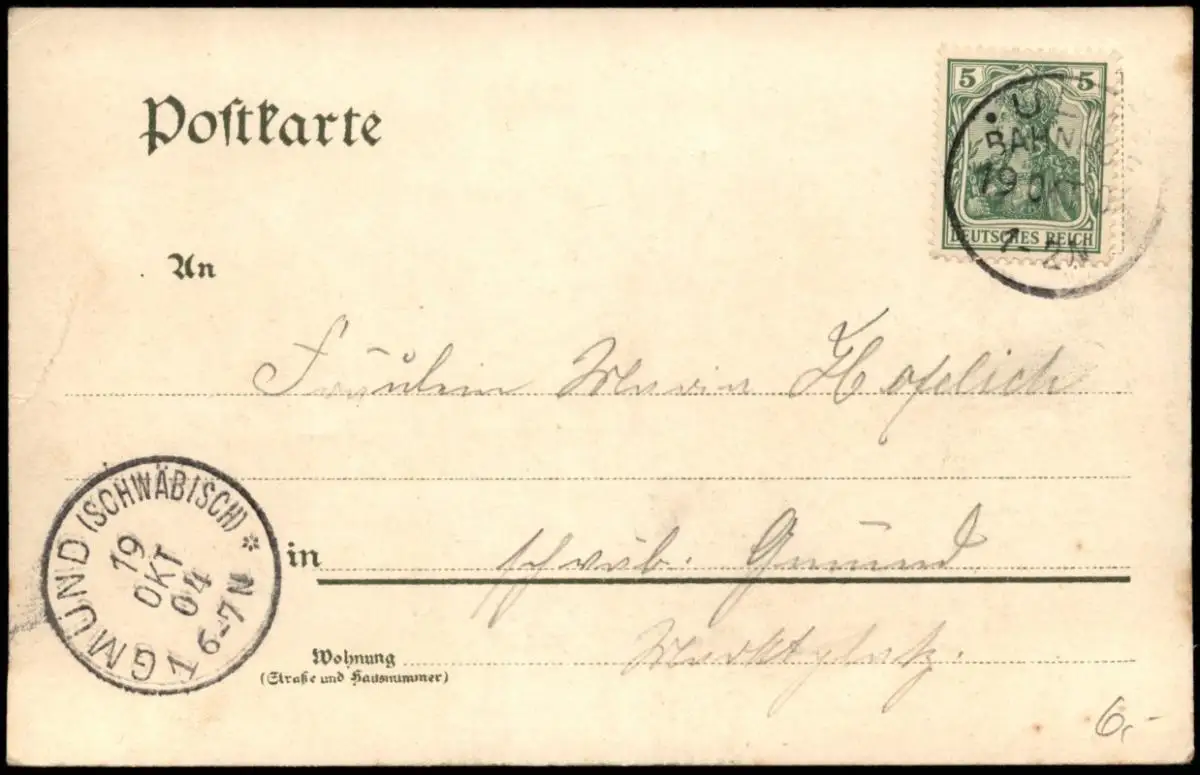 Postkarte
5 5
DEUTSCHES REICH
BAHN
19 OKT
1-2N
An
Fräulein Maria Hofelich
GMÜND (SCHWÄBISCH) *
19
OKT
04
6-7N
1
in schwäb. Gmünd
Wohnung Marktplatz.
(Straße und Hausnummer)
6,-